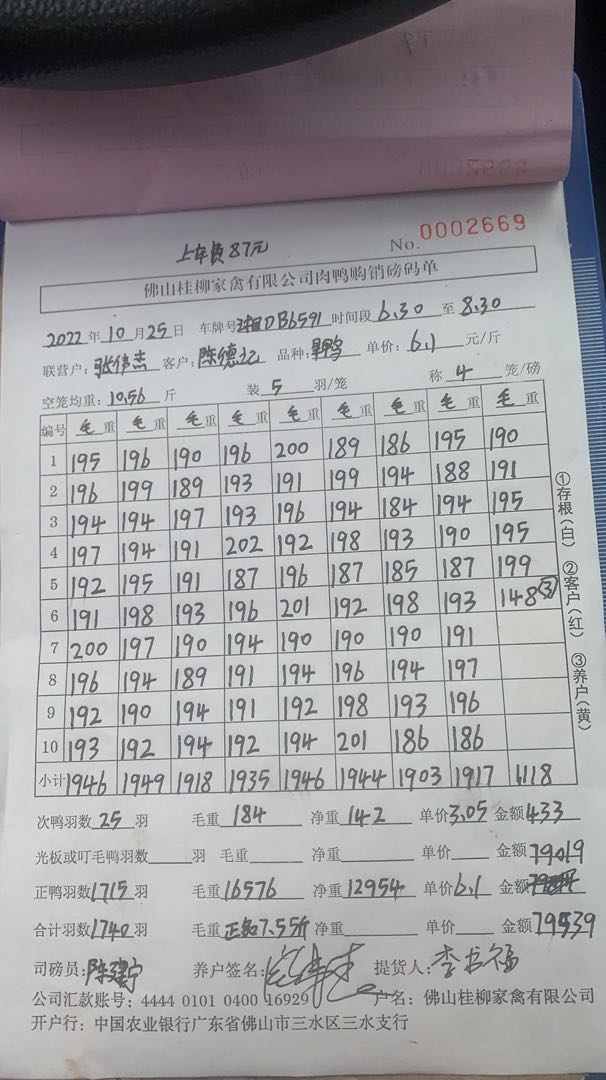 上车费87元
No. 0002669
佛山桂柳家禽有限公司肉鸭购销磅码单
2022年10月25日 车牌号 DB6591 时间段 6.30 至 8.30
联营户: 张伟杰 客户: 陈德记 品种: 鸭 单价: 6.1 元/斤
空笼均重: 10.56 斤 装 5 羽/笼 称 4 笼/磅
编号 毛重 毛重 毛重 毛重 毛重 毛重 毛重 毛重 毛重
1 195 196 190 196 200 189 186 195 190
2 196 199 189 193 191 199 194 188 191
3 194 194 197 193 196 194 184 194 195
4 197 194 191 202 192 198 193 190 195
5 192 195 191 187 196 187 185 187 199
6 191 198 193 196 201 192 198 193 148③
7 200 197 190 194 190 190 190 191
8 196 194 189 191 194 196 194 197
9 192 190 194 191 192 198 193 196
10 193 192 194 192 194 201 186 186
小计 1946 1949 1918 1935 1946 1944 1903 1917 1118
①存根(白) ②客户(红) ③养户(黄)
次鸭羽数 25 羽 毛重 184 净重 142 单价 3.05 金额 433
光板或叮毛鸭羽数 羽 毛重 净重 单价 金额 79019
正鸭羽数 1715 羽 毛重 16576 净重 12954 单价 6.1 金额
合计羽数 1740 羽 毛重 正均7.55斤 净重 单价 金额 79539
司磅员: 陈建宁 养户签名: 提货人: 李书福
公司汇款账号: 4444 0101 0400 16929 户名: 佛山桂柳家禽有限公司
开户行: 中国农业银行广东省佛山市三水区三水支行